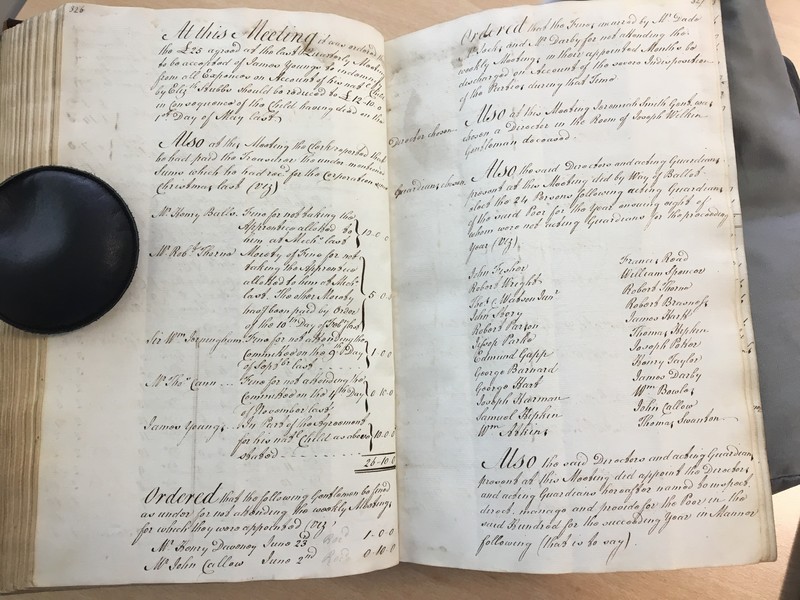 326
At this Meeting it was ordered that
the £25 agreed at the last Quarterly Meeting
to be accepted of James Youngs to indemnify
from all Expences on Account of his nat.l Child
by Eliz.th Stubbs should be reduced to £12-10-0
in Consequence of the Child having died on the
1st Day of May last
Also at this Meeting the Clerk reported that
he had paid the Treasurer the under mentioned
Sums which he had rec.d for the Corporation since
Christmas last (Viz)
Mr Henry Balls. Fine for not taking the
Apprentice allotted to
him at Mich.s last
10-0-0
Mr Rob.t Thorne Moiety of Fine for not
taking the Apprentice
allotted to him at Mich.s
last. The other Moiety
hav.g been paid by Order
of the 10th Day of Feb.y last
5-0-0
Sir Wm Jerningham Fine for not attending the
Committee on the 9th Day
of Sept.br last
1-0-0
Mr Tho.s Cann ... Fine for not attending the
Committee on the 4th Day
of November last
0-10-0
James Youngs .. In Part of his Agreement
for his nat.l Child as above
stated
10-0-0
26-10-0
Ordered that the following Gentlemen be fined
as under for not attending the weekly Meetings
for which they were appointed (Viz)
Mr Henry Daveney June 23d 1-0-0
Mr John Callow June 2nd 0-10-0
327
Ordered that the Fines incurred by Mr Dade
and Mr Darby for not attending the
weekly Meetings in their appointed Months be
discharged on Account of the severe Indisposition
of the Parties during that Time
Director chosen
Also at this Meeting Jeremiah Smith Gent. was
chosen a Director in the Room of Joseph Wilkin
Gentleman deceased
Guardians chosen
Also the said Directors and acting Guardians
present at this Meeting did by Way of Ballot
elect the 24 Persons following acting Guardians
of the said Poor for the Year ensuing eight of
whom were not acting Guardians for the preceeding
Year (Viz)
John Fisher
Robert Wright
Tho.s Watson Jun.r
John Ivory
Robert Parson
Jesop Parke
Edmund Gapp
George Barnard
George Hart
Joseph Harman
Samuel Stepkin
Wm Atkins
Francis Road
William Spencer
Robert Thorne
Robert
James Harff
Thomas Stepkin
Joseph Poker
Henry Taylor
James Darby
Wm Bowles
John Callow
Thomas Swanton
Also the said Directors and acting Guardians
present at this Meeting did appoint the Directors
and acting Guardians hereafter named to inspect
direct, manage and provide for the Poor in the
said Hundred for the succeeding Year in Manner
following (that is to say)